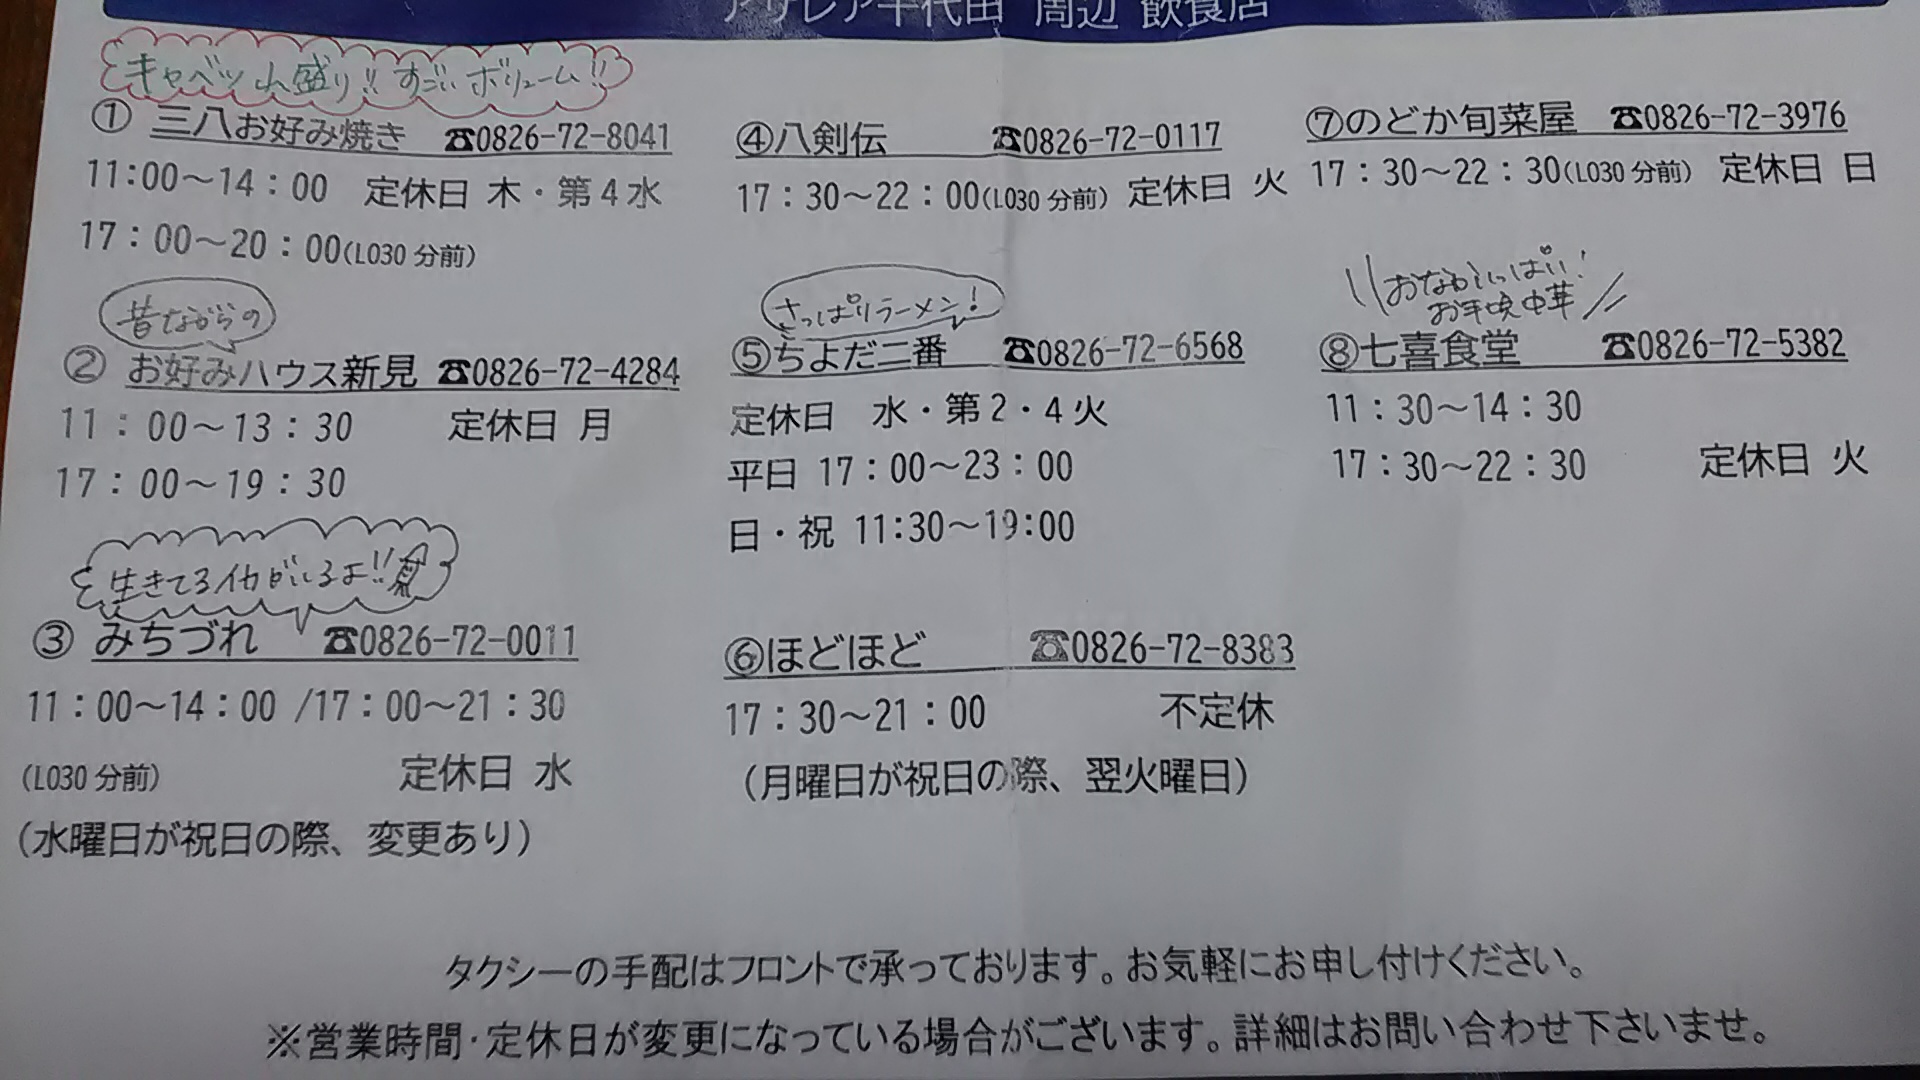 アザレア千代田 周辺 飲食店
キャベツ山盛り!! すごいボリューム!!
① 三八お好み焼き ☎0826-72-8041
11:00～14：00 定休日 木・第4水
17：00～20：00(LO30分前)
昔ながらの
② お好みハウス新見 ☎0826-72-4284
11：00～13：30 定休日 月
17：00～19：30
生きてるイカがいるよ!!
③ みちづれ ☎0826-72-0011
11：00～14：00 /17：00～21：30
(LO30分前) 定休日 水
（水曜日が祝日の際、変更あり）
④八剣伝 ☎0826-72-0117
17：30～22：00(LO30分前) 定休日 火
さっぱりラーメン!
⑤ちよだ二番 ☎0826-72-6568
定休日 水・第2・4火
平日 17：00～23：00
日・祝 11:30～19:00
⑥ほどほど ☎0826-72-8383
17：30～21：00 不定休
（月曜日が祝日の際、翌火曜日）
⑦のどか旬菜屋 ☎0826-72-3976
17：30～22：30(LO30分前) 定休日 日
おなかいっぱい!
お手頃中華
⑧七喜食堂 ☎0826-72-5382
11：30～14：30
17：30～22：30 定休日 火
タクシーの手配はフロントで承っております。お気軽にお申し付けください。
※営業時間・定休日が変更になっている場合がございます。詳細はお問い合わせ下さいませ。